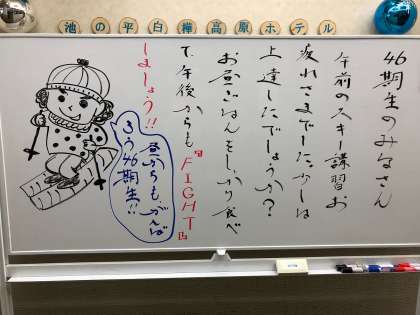 池の平白樺高原ホテル
46期生のみなさん
午前のスキー講習お
疲れさまでした。少しは
上達したでしょうか?
お昼ごはんをしっかり食べ
て、午後からも『FIGHT』
しましょう!!
昼からも、がんば
ろう46期生!!